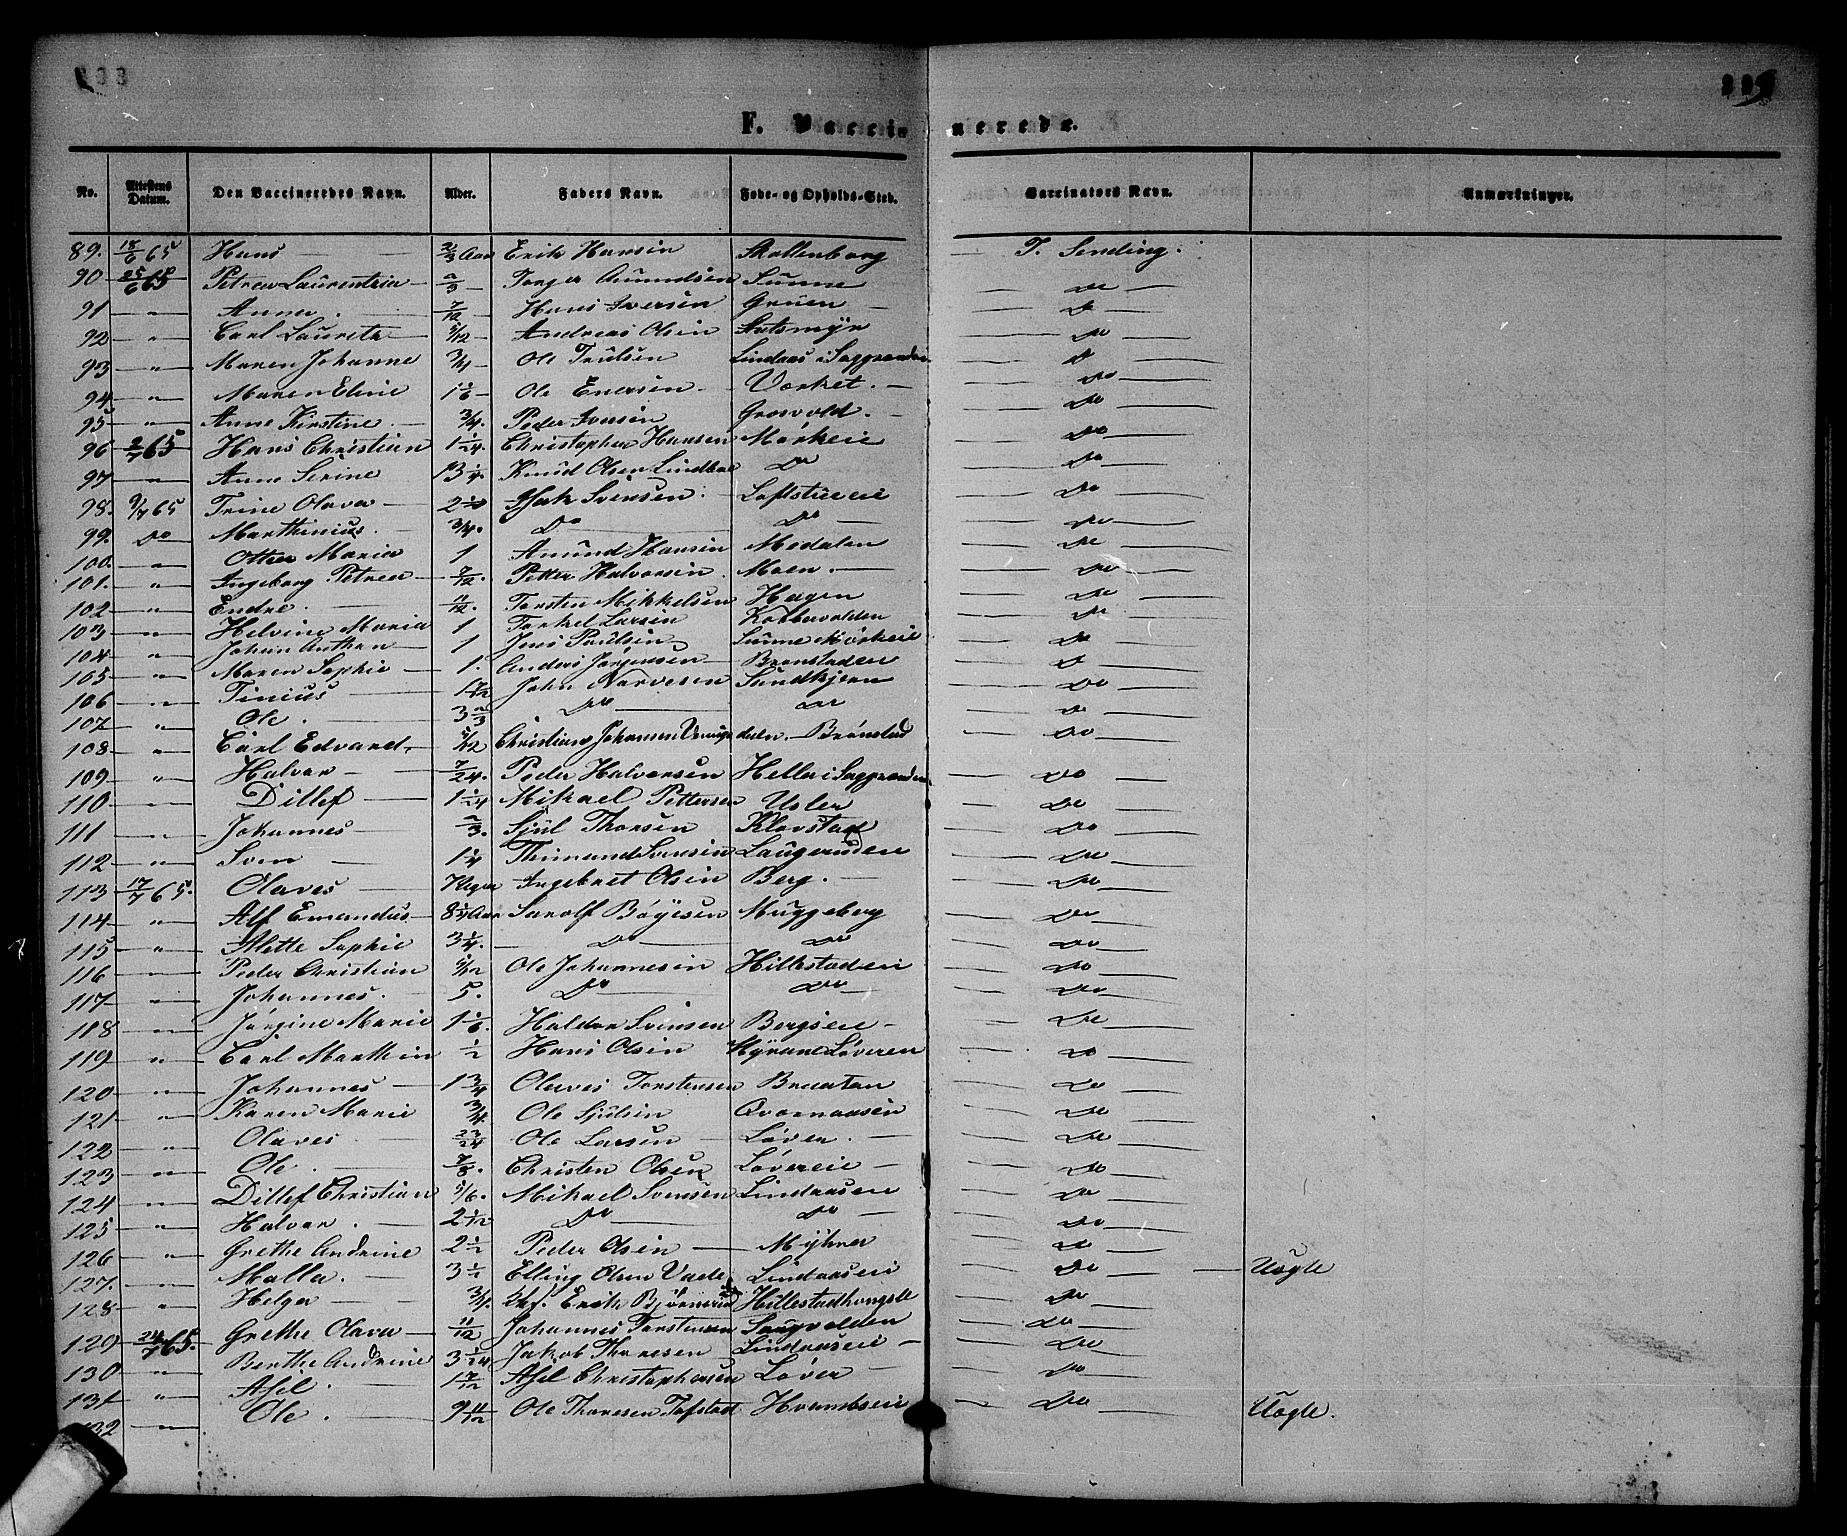 F. Vaccinerede.
No. Attestens Datum. Den Vaccineredes Navn. Alder. Faders Navn. Føde- og Opholds-Sted. Vaccinators Navn. Anmærkninger.
89. 18/6 65 Hans — 2/3 Aar Erik Hansen Skollenborg — T. Sending.
90 25/6 65 Petrea Laurentzia — 2/3 — Torger Amundsen Sunne — Do —
91 — " — Anna. — 7/12 — Hans Iversen Gruen — Do —
92 — " — Carl Lauretz — 5/12 — Andreas Olsen — Do —
93 — " — Maren Johanne 3/4 — Ole Trulsen Lindaas i Saggrenden — Do —
94 — " — Maren Eline 1 1/6 — Ole Enersen — Værket. — Do —
95 — " — Anne Kirstine. — 3/4. Peder Iversen Grosvold. — Do —
96 2/7 65 Hans Christian 1 1/24. Christopher Hansen Mørkeie — Do —
97 — " — Anne Serine 13 1/4 Knud Olsen Lindbæ Do — Do —
98. 9/7 65 Trine Olava — Isak Svensen. Loftstueeie — Do —
99. Do Marthinius. 3/4. Do — Do — Do —
100. — " — Othea Maria 1 Amund Hansen Medalen — Do —
101. — " — Ingeborg Petrea — 7/12. Petter Halvorsen Moen. — Do —
102 — " — Endre. — 11/12. Torsten Mikkelsen Hagen — Do —
103 — " — Helvine Maria 1 Torkel Larsen Kobbervolden — Do —
104 — " — Johan Anthon — 1 Jens Paulsen Sunne Mørkeie — Do —
105 — " — Maren Sophie — 1. Anders Jørgensen — Brønstadeie — Do —
106 — " — Tinius — 1 7/12 John Narvesen Sundkjern — Do —
107 — " — Ole. — 3 2/3 Do — Do — Do —
108 — " — Carl Edvard, — 5/12 Christian Johansen Brønstad — Do —
109 — " — Halvor — 7/24. Peder Halvorsen Hella i Saggrenden — Do —
110 — " — Ditlef — 1 1/24 Mikael Pettersen Usler — Do —
111 — " — Johannes — 2/3. Sjul Thorsen Klovstad — Do —
112 — " — Sven — 1 1/4 Thimand Svensen Laugeruden — Do —
113 17/7 65. Olaves — 7 Uger Ingebret Olsen Berg. — Do —
114 — " — Alf Emandus — 8 1/4 Aar Sarolf Bøyesen Muggeberg — Do —
115 — " — Alette Sophie 3 1/4. — Do — Do — Do —
116 — " — Peder Christian 5/12 Ole Johannesen Hillestadeie — Do —
117 — " — Johannes. 5. Do Do — Do —
118 — " — Jørgine Marie 1 1/6. Haldor Svensen Bergseie — Do —
119 — " — Carl Marthin 1/2 Hans Olsen Myrane Løveren — Do —
120 — " — Johannes — 1 3/4 Olaves Torstensen Braatan — Do —
121 — " — Karen Marie 3/4. Ole Sjulsen Qvernaasen — Do —
122 — " — Olaves. 23/24 Ole Larsen — Løver. — Do —
123 — " — Ole. — 7/8. Christen Olsen Løvereie — Do —
124 — " — Ditlef Christian 5/6. Mikael Svensen Lindaasen — Do —
125 — " — Halvor. — 2 1/12 Do — Do — Do —
126 — " — Grethe Andrine 2 1/2 Peder Olsen — Myhra — Do —
127. — " — Malla. — 3 1/2 Elling Olsen Vade Lindaaseie — Do — Uægte
128 — " — Helga — 3/4. Erik Bjørnerud — Do —
129 24/7 65. Grethe Olava — 11/12 Johannes Torstensen Saugvolden — Do —
130 — " — Berthe Andrine 3 1/24 Jakob Thoresen Lindaaseie — Do —
131 — " — Axel. — 1 7/12 Axel Christophersen Løver — Do —
132 — " — Ole. — 9 11/12 Ole Thoresen Tofstad Hvambseie — Do — Uægte.